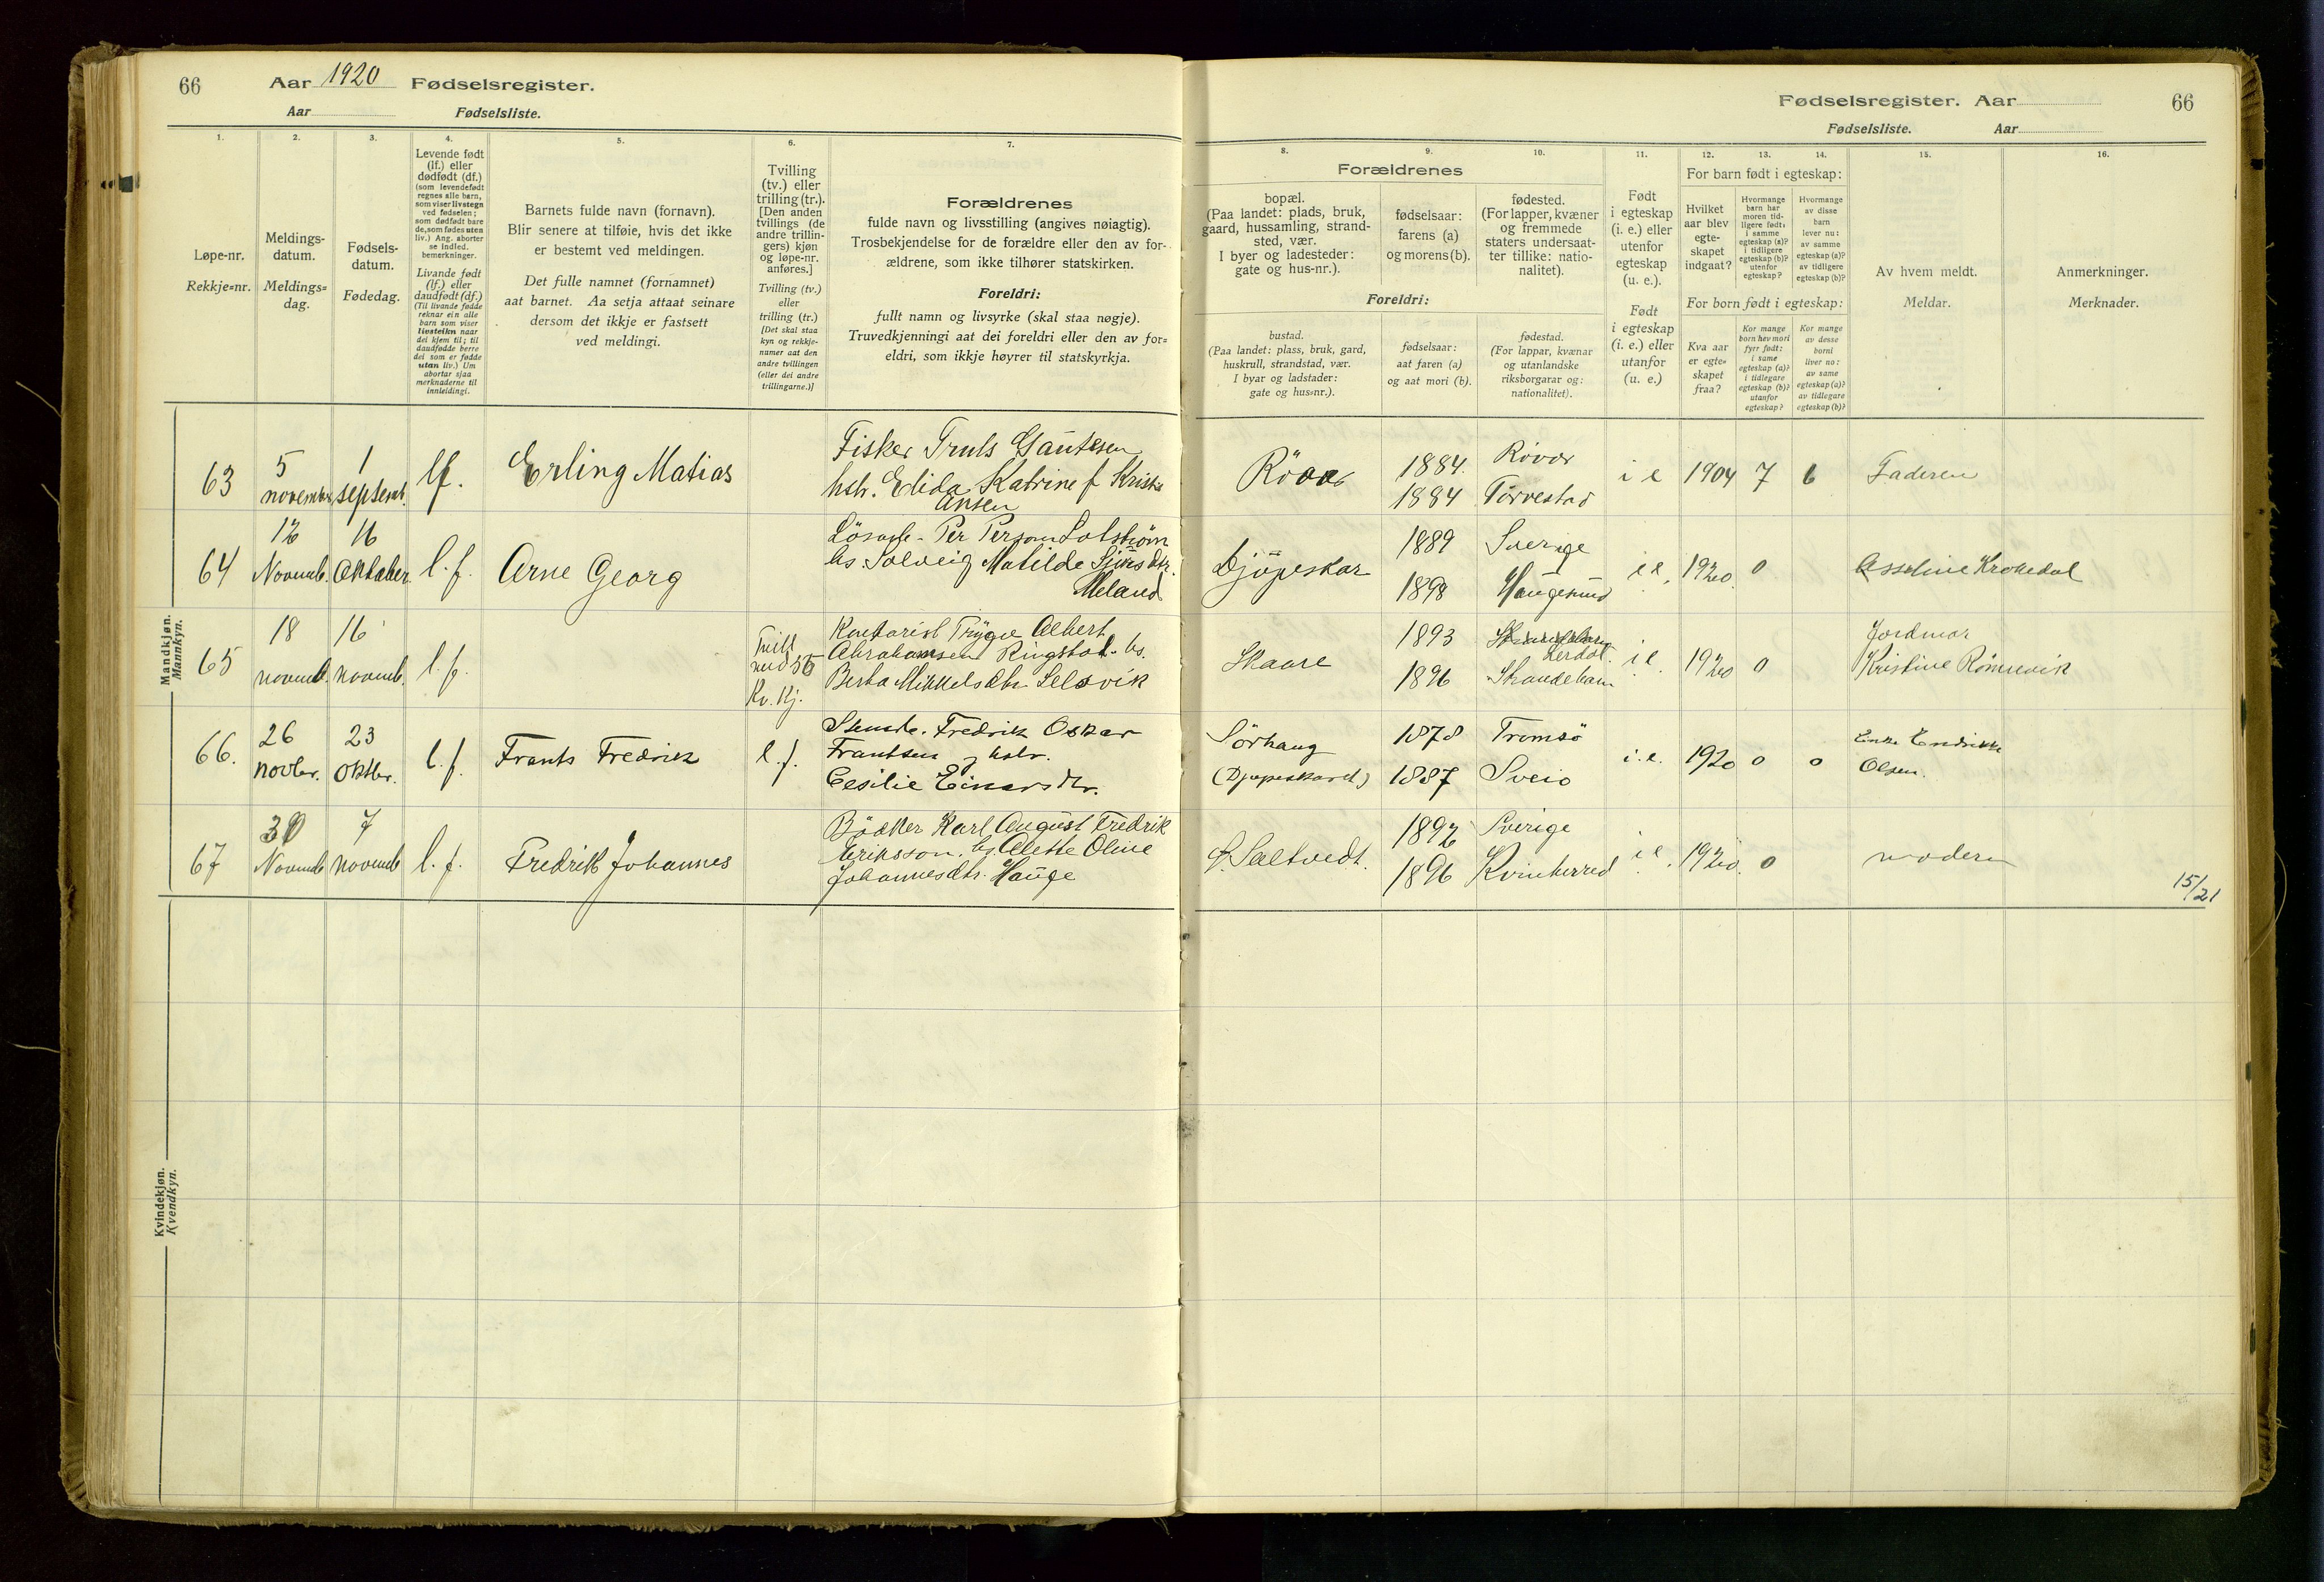 66 Aar 1920 Fødselsregister.
Aar Fødselsliste.
1. 2. 3. 4. 5. 6. 7.
Løpe-nr.
Rekkje-nr.
Meldings-
datum.
Meldings-
dag.
Fødsels-
datum.
Fødedag.
Levende født
(lf.) eller
dødfødt (df.)
(som levendefødt
regnes alle barn,
som viser livstegn
ved fødselen;
som dødfødt bare
de, som fødes uten
liv.) Ang. aborter
se indled.
bemerkninger.
Livande født
(lf.) eller
daudfødt (df.)
(Til livande fødde
reknar ein alle
barn som viser
livsteikn naar
dei kjem til; til
daudfødde berre
dei som er fødde
utan liv.) Um
abortar sjaa
merknaderne til
innleidingi.
Barnets fulde navn (fornavn).
Blir senere at tilføie, hvis det ikke
er bestemt ved meldingen.
Det fulle namnet (fornamnet)
aat barnet. Aa setja attaat seinare
dersom det ikkje er fastsett
ved meldingi.
Tvilling
(tv.) eller
trilling (tr.).
[Den anden
tvillings (de
andre trillin-
gers) kjøn
og løpe-nr.
anføres.]
Tvilling (tv.)
eller
trilling (tr.)
[Det skal staa
kyn og rekkje-
numer aat den
andre tvillingen
(eller dei andre
trillingarne.)]
Forældrenes
fulde navn og livsstilling (angives nøiagtig).
Trosbekjendelse for de forældre eller den av for-
ældrene, som ikke tilhører statskirken.
Foreldri:
fullt namn og livsyrke (skal staa nøgje).
Truvedkjenningi aat dei foreldri eller den av for-
eldri, som ikkje høyrer til statskyrkja.
Mandkjøn.
Mannkyn.
63 5 novembr 1 septemb. lf. Erling Matias
Fisker Truls Gautesen
hstr. Elida Katrine f Kristi
ansen
64 12 Novemb. 16 Oktober l. f. Arne Georg
Per Person
hs. Solveig Matilde Sjursdtr.
Meland
65 18 novemb. 16 novemb. l. f.
Tvill
med 56
Kv. Kj.
Kontorist Trygve Albert
Abrahamsen Ringstad. hs.
Berta Mikkelsdtr Selsvik
66. 26 novbr. 23 oktbr. l. f. Frants Fredrik l. f.
Fredrik Oskar
Frantsen og hstr.
Cesilie Einarsdtr.
67 30 Novemb 7 novemb l. f. Fredrik Johannes
Bödker Karl August Fredrik
Eriksson. hs. Alette Oline
Johannesdtr. Hauge
Kvindekjøn.
Kvendkyn.
Fødselsregister. Aar 66
Fødselsliste. Aar
8. 9. 10. 11. 12. 13. 14. 15. 16.
Forældrenes
bopæl.
(Paa landet: plads, bruk,
gaard, hussamling, strand-
sted, vær.
I byer og ladesteder:
gate og hus-nr.).
fødselsaar:
farens (a)
og morens (b).
fødested.
(For lapper, kvæner
og fremmede
staters undersaat-
ter tillike: natio-
nalitet).
Foreldri:
bustad.
(Paa landet: plass, bruk, gard,
huskrull, strandstad, vær.
I byar og ladstader:
gate og hus-nr.).
fødselsaar:
aat faren (a)
og aat mori (b).
fødestad.
(For lappar, kvænar
og utanlandske
riksborgarar og:
nationalitet).
Født
i egteskap
(i. e.) eller
utenfor
egteskap
(u. e.).
Født
i egteskap
(i. e.) eller
utanfor
(u. e.)
For barn født i egteskap:
Hvilket
aar blev
egte-
skapet
indgaat?
Hvormange
barn har
moren tid-
ligere født:
i samme
egteskap (a)?
i tidligere
egteskap (b)?
utenfor
egteskap?
Hvormange
av disse
barn
lever nu:
av samme
egteskap (a)?
av tidligere
egteskap (b)?
For born født i egteskap:
Kva aar
er egte-
skapet
fraa?
Kor mange
born hev mori
fyrr født:
i same
egteskap (a)?
i tidlegare
egteskap (b)?
utanfor
egteskap?
Kor mange
av desse
borni
liver no:
av same
egteskap (a)?
av tidlegare
egteskap (b)?
Av hvem meldt.
Meldar.
Anmerkninger.
Merknader.
1884. Rövær i e 1904 7 6 Faderen
1884 Torvestad
Djöpeskar 1889 Sverige i e. 1920. 0
1898 Haugesund
Skaare 1893 i e. 1920 0 Jordmor
1896 Kristine Rönnevik
Sörhaug 1878 Tromsö i. e. 1920 0 0 Enke Endrikke
(Djupeskaret) 1887 Sveio Olsen.
1892 Sverige i e. 1920. 0 moderen
1896 Kvinherred
15/21